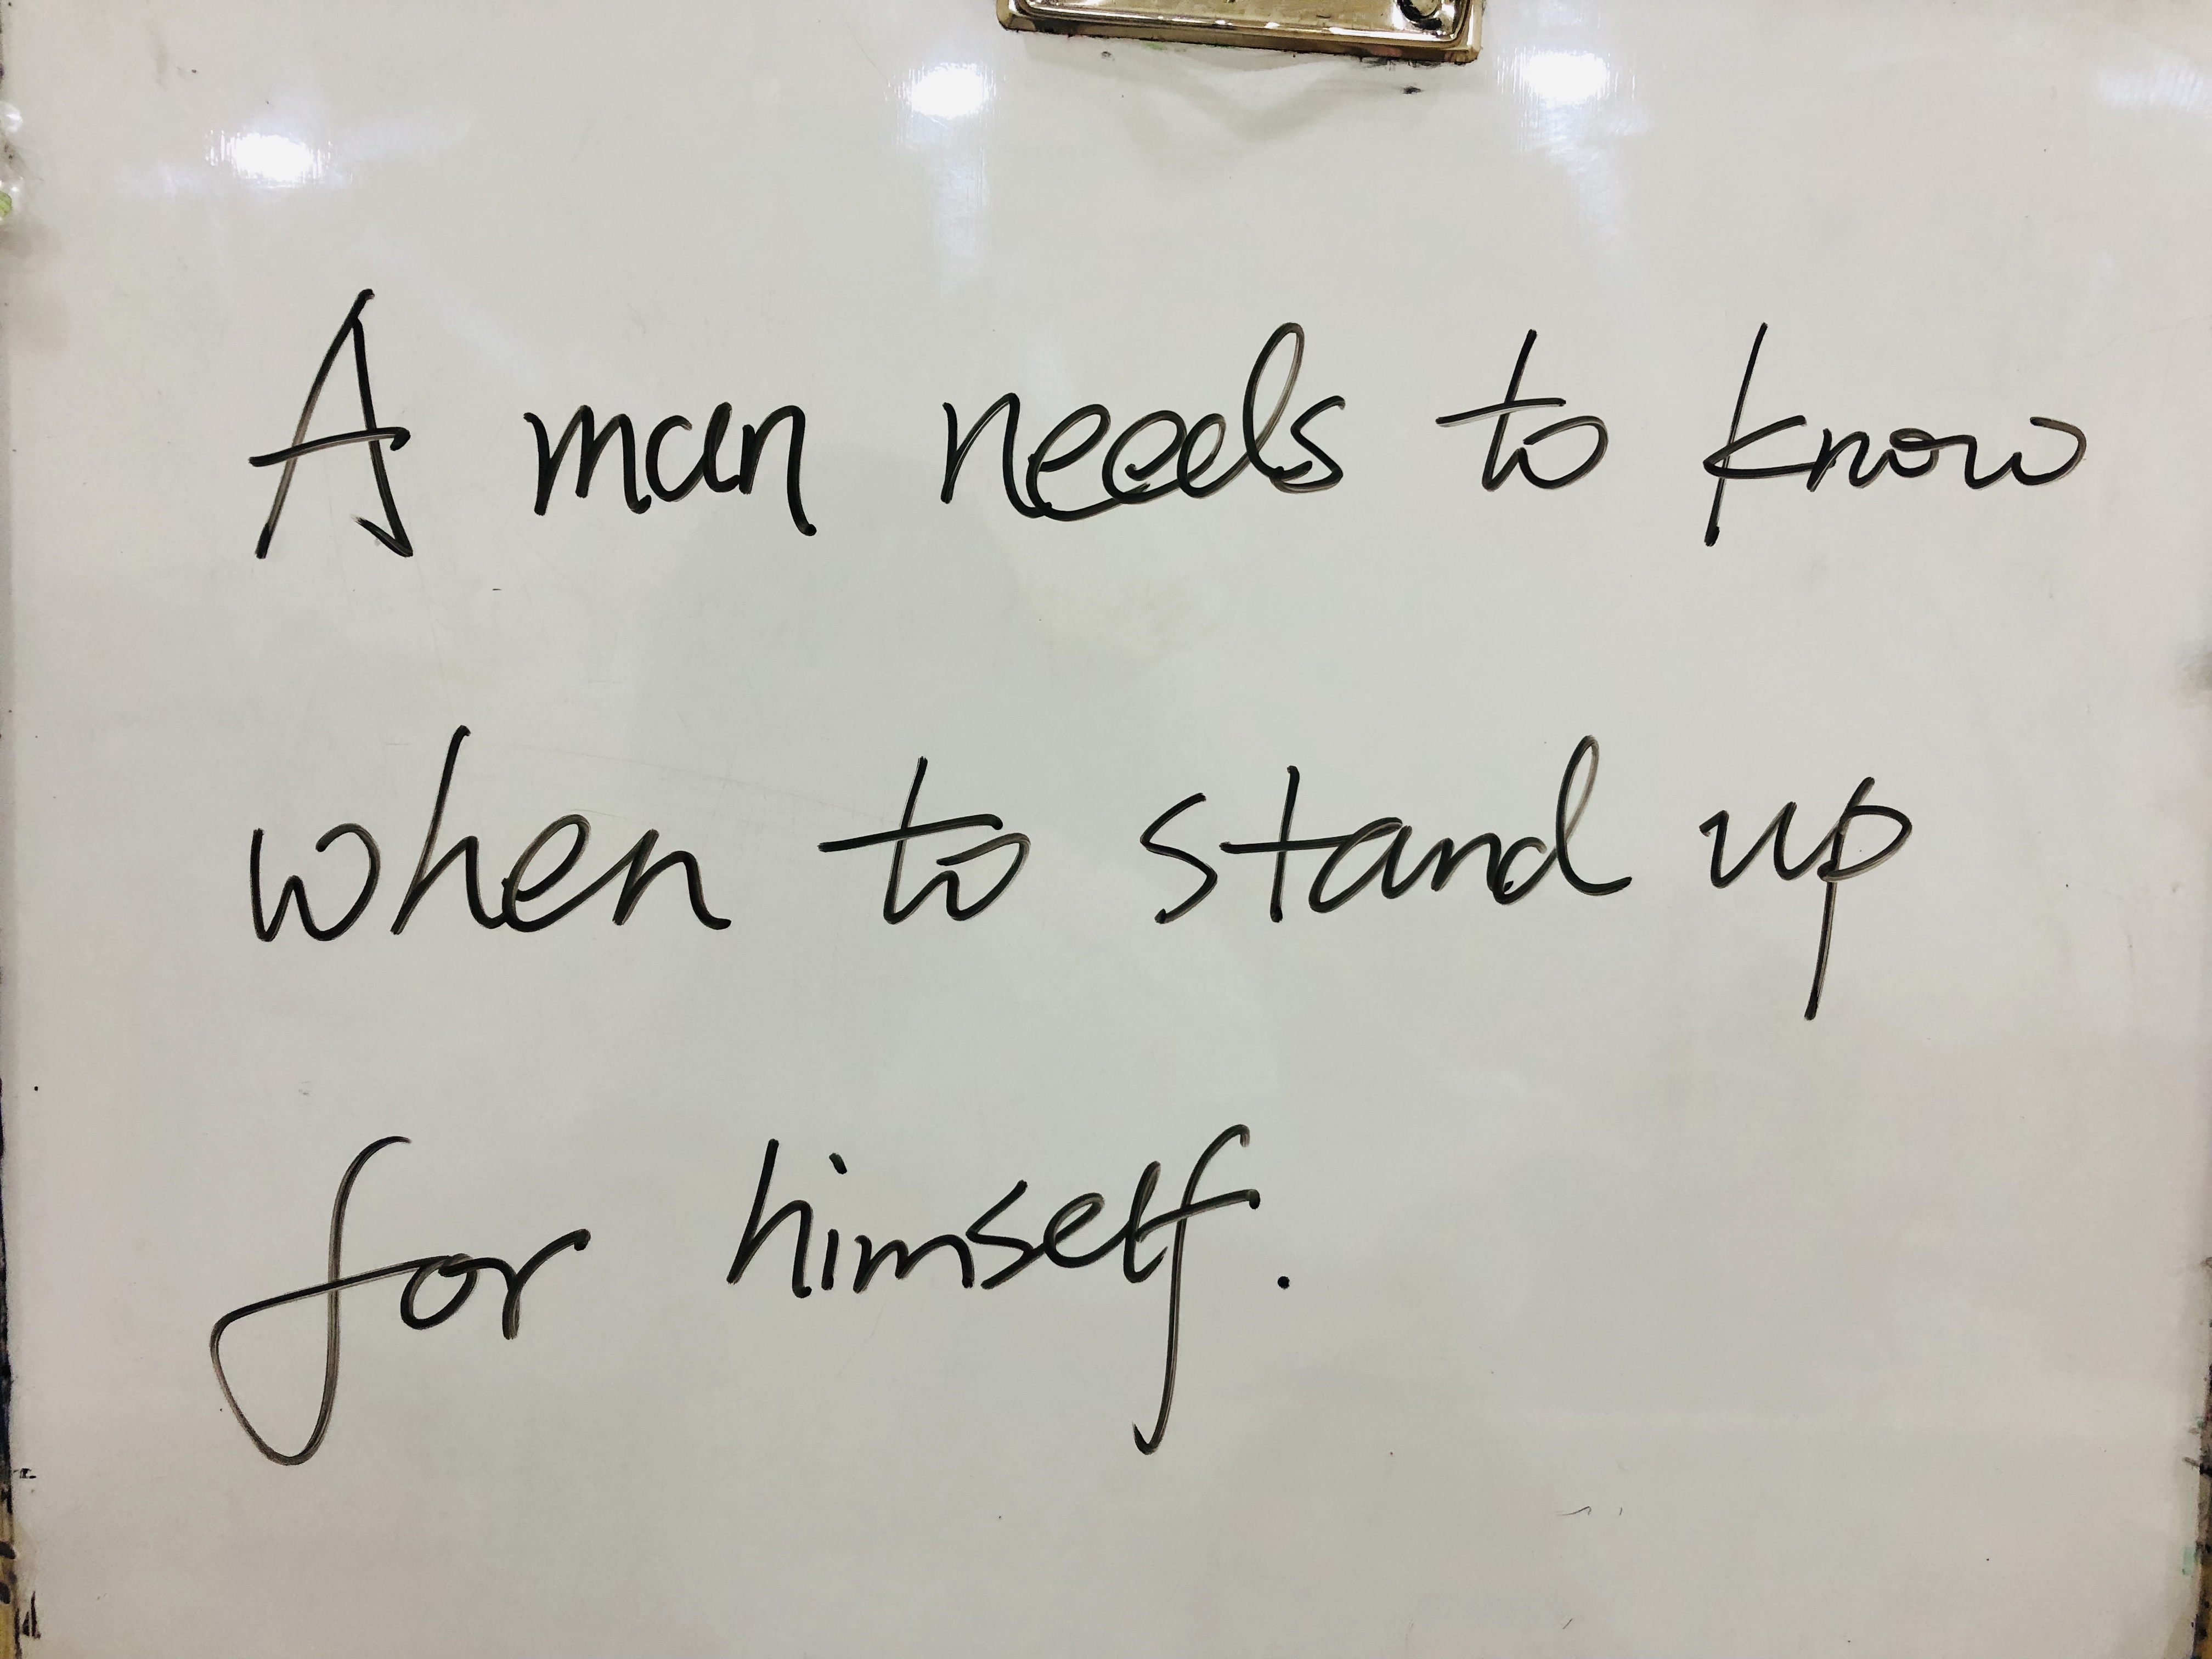 A man needs to know
when to stand up
for himself.